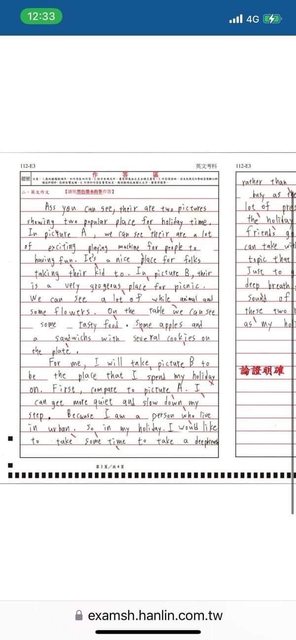 12:33
4G
112-E3
英文考科
112-E3
作 答 區
二、英文作文
Ass you can see, their are two pictures
showing two popular place for holiday time.
In picture A, we can see their are a lot
of exciting playing machine for people to
having fun. It's a nice place for folks
taking their kid to. In picture B, thir
is a very gorgeous place for picnic.
We can see a lot of while animal and
some flowers. On the table we can see
some tasty food. Some apples and
a sandwichs with several cookies on
the plate.
For me, I will take picture B to
be the place that I spend my holiday
on. First, compare to picture A. I
can get more quiet and slow down my
step. Because I am a person who live
in urban. So in my holiday. I would like
to take some time to take a deepbreath
rather than
busy as the
lot of pres
the holiday
friends go
can take wit
topic that
Just to
deep breath
sounds of
these two
as my ho
論證順確
第 3 頁／共 4 頁
examsh.hanlin.com.tw